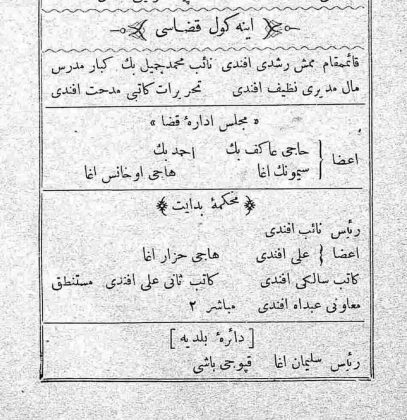 اینه کول قضاسی
قائممقام ممش رشدی افندی نائب محمدجمیل بك کبار مدرس
مال مدیری نظیف افندی تحریرات کاتبی مدحت افندی
« مجلس ادارهٔ قضا »
اعضا { حاجی عاکف بك احمد بك
سیمونك اغا هاجی اوخانس اغا
محکمهٔ بدایت
رئیس نائب افندی
اعضا { علی افندی هاجی حزار اغا
کاتب سالکی افندی کاتب ثانی علی افندی مستنطق
معاونی عبداه افندی مباشر ۲
[ دائرهٔ بلدیه ]
رئیس سلیمان اغا قپوجی باشی